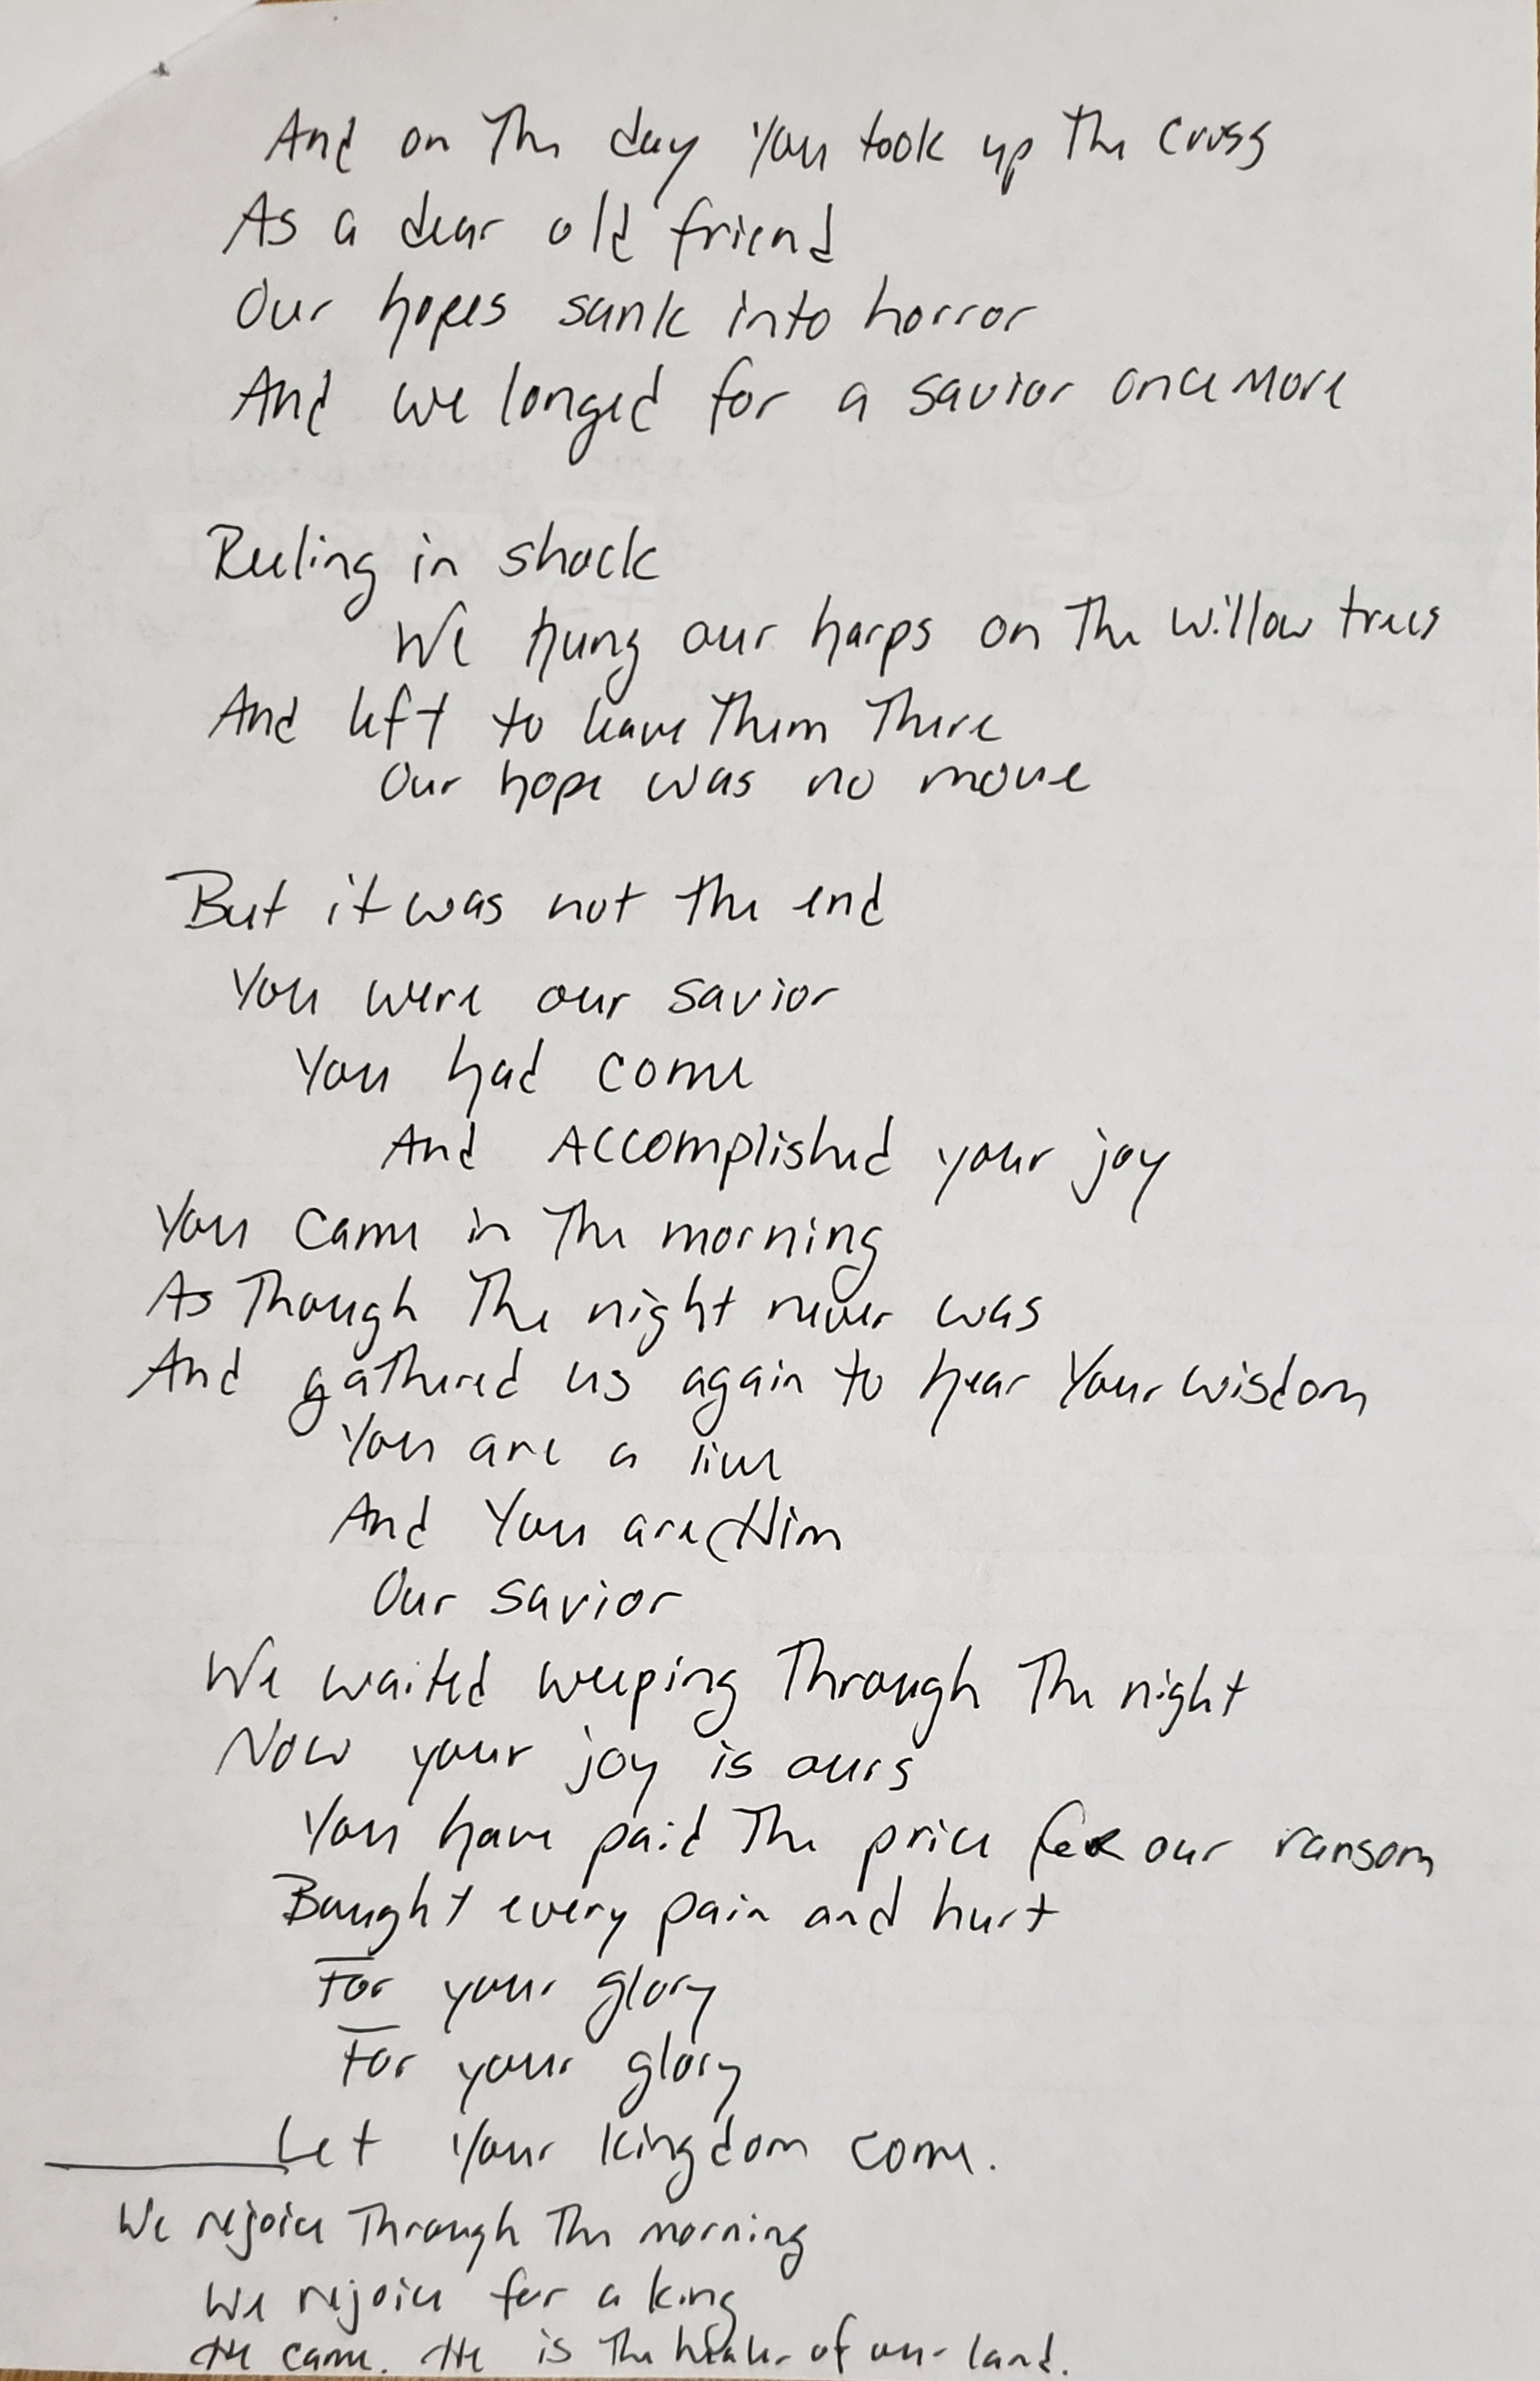 And on The day You took up The cross
As a dear old friend
Our hopes sank into horror
And we longed for a savior once more
Reeling in shock
We hung our harps on The willow trees
And left to leave Them There
Our hope was no more
But it was not The end
You were our savior
You had come
And Accomplished your joy
You came in The morning
As Though The night never was
And gathered us again to hear Your wisdom
You are a
And You are Him
Our savior
We waited weeping Through The night
Now your joy is ours
You have paid The price for our ransom
Bought every pain and hurt
For your glory
For your glory
Let Your kingdom come.
We rejoice Through The morning
We rejoice for a king
He came. He is The healer of our land.